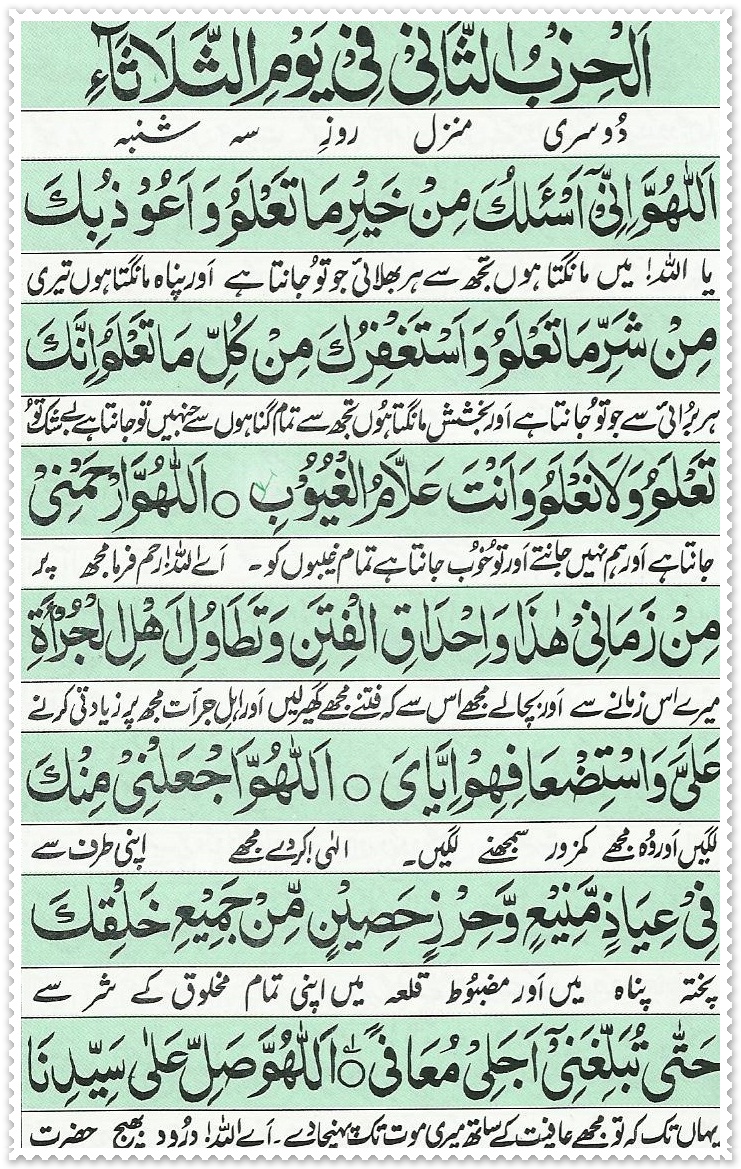 اَلْحِزْبُ الثَّانِیْ فِیْ یَوْمِ الثَّلَاثَآءِ
دُوسری منزل روزِ سہ شنبہ
اَللّٰهُمَّ اِنِّیْٓ اَسْئَلُكَ مِنْ خَیْرِ مَا تَعْلَمُ وَ اَعُوْذُ بِكَ
یا اللہ! میں مانگتا ہوں تجھ سے ہر بھلائی جو تُو جانتا ہے اَور پناہ مانگتا ہوں تیری
مِنْ شَرِّ مَا تَعْلَمُ وَ اَسْتَغْفِرُكَ مِنْ كُلِّ مَا تَعْلَمُ اِنَّكَ
ہر بُرائی سے جو تو جانتا ہے اَور بخشش مانگتا ہُوں تجھ سے تمام گناہوں سے جنہیں تو جانتا ہے بے شک تُو
تَعْلَمُ وَ لَا نَعْلَمُ وَ اَنْتَ عَلَّامُ الْغُیُوْبِ ○ اَللّٰهُمَّ ارْحَمْنِیْ
جانتا ہے اَور ہم نہیں جانتے اَور تو خُوب جانتا ہے تمام غیبوں کو۔ اَے اللہ! رحم فرما مجھ پر
مِنْ زَمَانِیْ هٰذَا وَ اِحْدَاقِ الْفِتَنِ وَ تَطَاوُلِ اَهْلِ الْجُرْأَةِ
میرے اس زمانے سے اَور بچا لے مجھے اس سے کہ فتنے مجھے گھیر لیں اَور اہل جرأت مجھ پر زیادتی کرنے
عَلَیَّ وَ اسْتِضْعَافِهِمْ اِیَّایَ ○ اَللّٰهُمَّ اجْعَلْنِیْ مِنْكَ
لگیں اَور وُہ مجھے کمزور سمجھنے لگیں۔ الٰہی! کر دے مجھے اپنی طرف سے
فِیْ عِیَاذٍ مَّنِیْعٍ وَّ حِرْزٍ حَصِیْنٍ مِّنْ جَمِیْعِ خَلْقِكَ
پختہ پناہ میں اَور مضبُوط قلعہ میں اپنی تمام مخلوق کے شر سے
حَتّٰی تُبَلِّغَنِیْٓ اَجَلِیْ مُعَافًی ○ اَللّٰهُمَّ صَلِّ عَلٰی سَیِّدِنَا
یہاں تک کہ تو مجھے عافیت کے ساتھ میری موت تک پہنچا دے۔ اَے اللہ! درُود بھیج حضرت